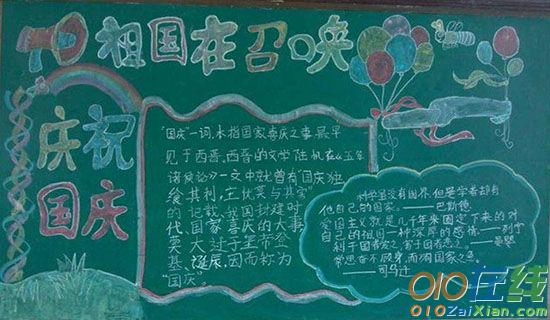 祖国在召唤
庆祝
国庆
"国庆"一词,本指国家喜庆之事,最早
见于西晋,西晋的文学陆机在《五等
诸侯论》一文中就曾有"国庆独
飨其利,主忧莫与其害"
的记载,我国封建时
代、国家喜庆的大事
莫大过于皇帝登
基、诞辰,因而称为
"国庆"。
科学虽没有国界,但是学者却有
他自己的国家。——巴斯德
爱国主义就是几千年来固定下来的对
自己的祖国一种深厚的感情。——列宁
利于国者爱之,害于国者恶之。——晏婴
常思奋不顾身,而殉国家之急。
——司马迁
010在线
010ZaiXian.com